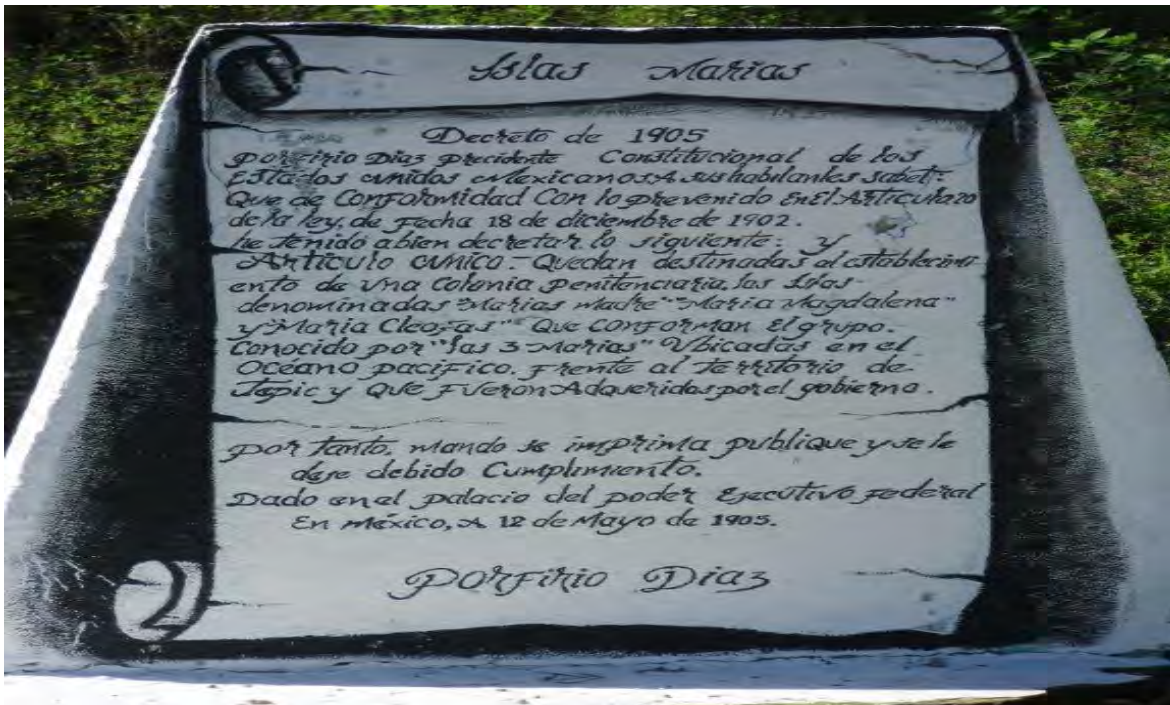 Islas Marias
Decreto de 1905
Porfirio Diaz Precidente Constitucional de los
Estados unidos Mexicanos A sus habitantes sabet:
Que de Conformidad Con lo prevenido En El Articulo 20
de la ley, de Fecha 18 de diciembre de 1902.
he Tenido a bien decretar lo siguiente: y
Articulo unico.- Quedan destinadas al establecimi
ento de una Colonia penitenciaria, las Islas-
denominadas "Marias Madre" "Maria Magdalena"
y "Maria Cleofas" Que conforman El grupo.
Conocido por "las 3 Marias" Ubicadas en el
Oceano pacifico. Frente al Territorio de-
Tepic y Que Fueron Adqueridas por el gobierno.
por Tanto, mando se imprima publique y se le
deje debido Cumplimiento.
Dado en el palacio del poder Ejecutivo Federal
En méxico, A 12 de Mayo de 1905.
Porfirio Diaz